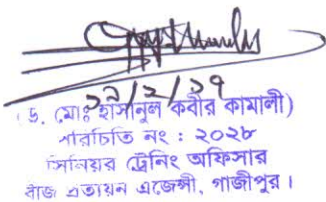 ১২/২/১৭
ড. মোঃ হাসানুল কবীর কামালী)
পরিচিতি নং : ২০২৮
সিনিয়র ট্রেনিং অফিসার
বীজ প্রত্যয়ন এজেন্সী, গাজীপুর।